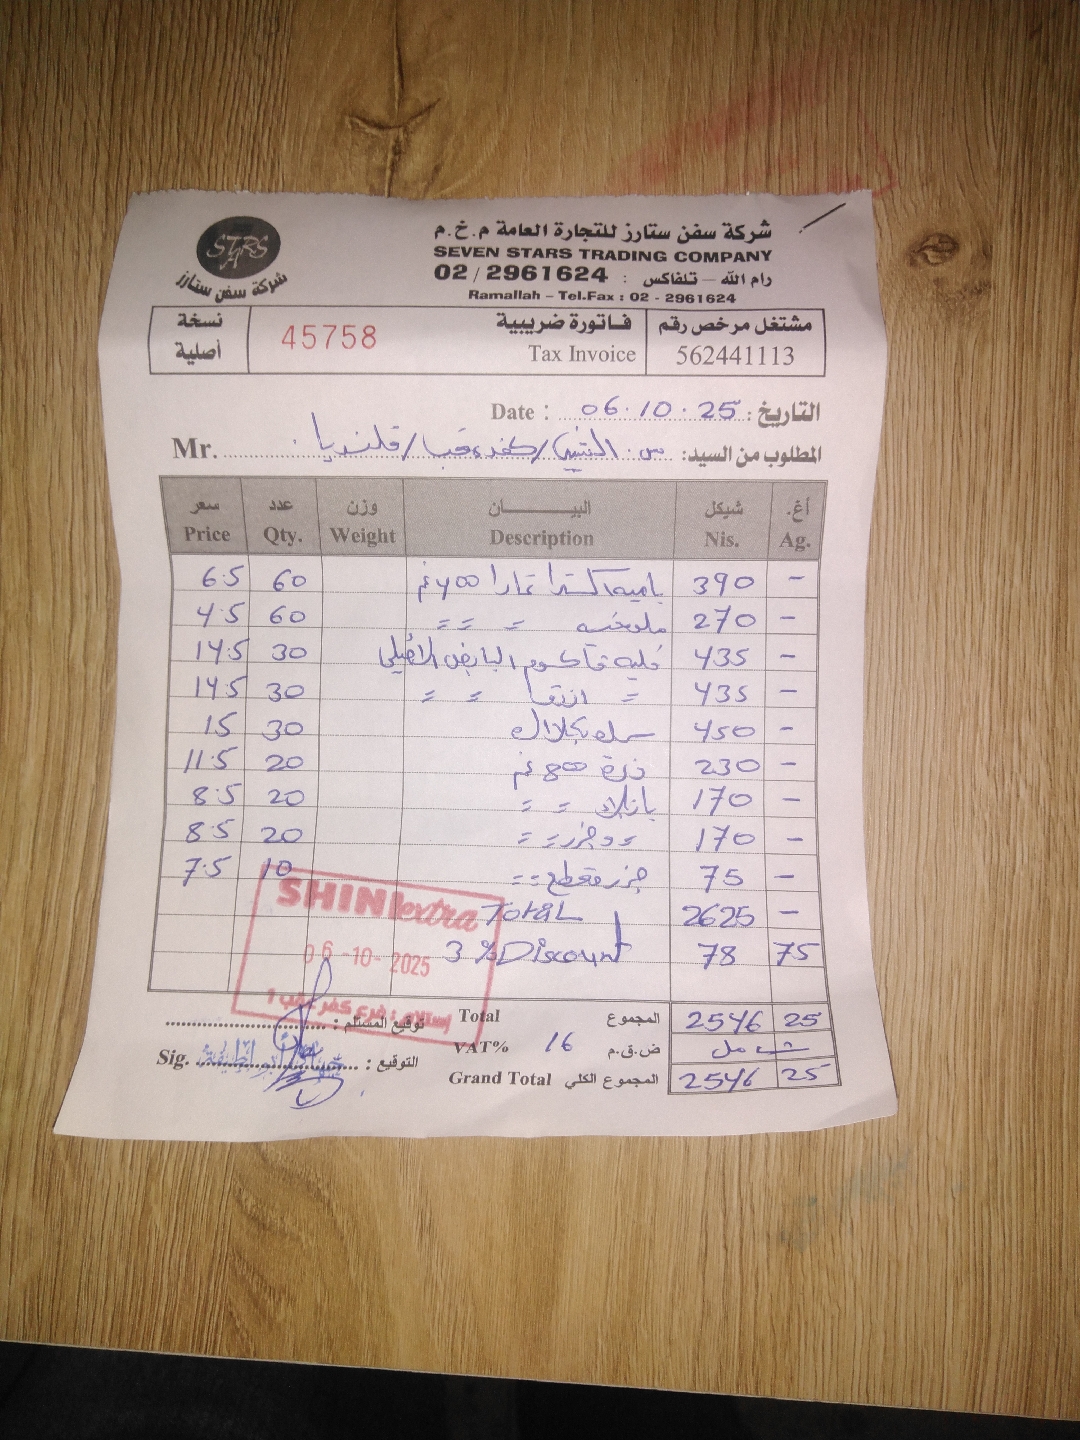 STARS
شركة سفن ستارز
شركة سفن ستارز للتجارة العامة م.خ.م
SEVEN STARS TRADING COMPANY
رام الله – تلفاكس : 02 / 2961624
Ramallah – Tel.Fax : 02 - 2961624
مشتغل مرخص رقم
562441113
فاتورة ضريبية
Tax Invoice
45758
نسخة
أصلية
التاريخ: 06.10.25 : Date
المطلوب من السيد: كفر عقب/قلنديا Mr.
أغ. شيكل البيـــــان وزن عدد سعر
Ag. Nis. Description Weight Qty. Price
- 390 باميه اكسترا 400 غم 60 6.5
- 270 ملوخيه = = = 60 4.5
- 435 30 14.5
- 435 = = = 30 14.5
- 450 30 15
- 230 ذرة 800 غم 20 11.5
- 170 = = 20 8.5
- 170 = وجزر = = 20 8.5
- 75 جزر مقطع = = 10 7.5
- 2625 Total
75 78 3% Discount
SHINI extra
06-10-2025
إستلام : فرع كفر عقب 1
Total المجموع 2546 25
VAT% 16 ض.ق.م شامل
Grand Total المجموع الكلي 2546 25
توقيع المستلم :
التوقيع : Sig.